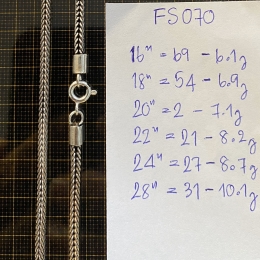 FS070
16" = 69 - 6.1g
18" = 54 - 6.9g
20" = 2 - 7.1g
22" = 21 - 8.2g
24" = 27 - 8.7g
28" = 31 - 10.1g